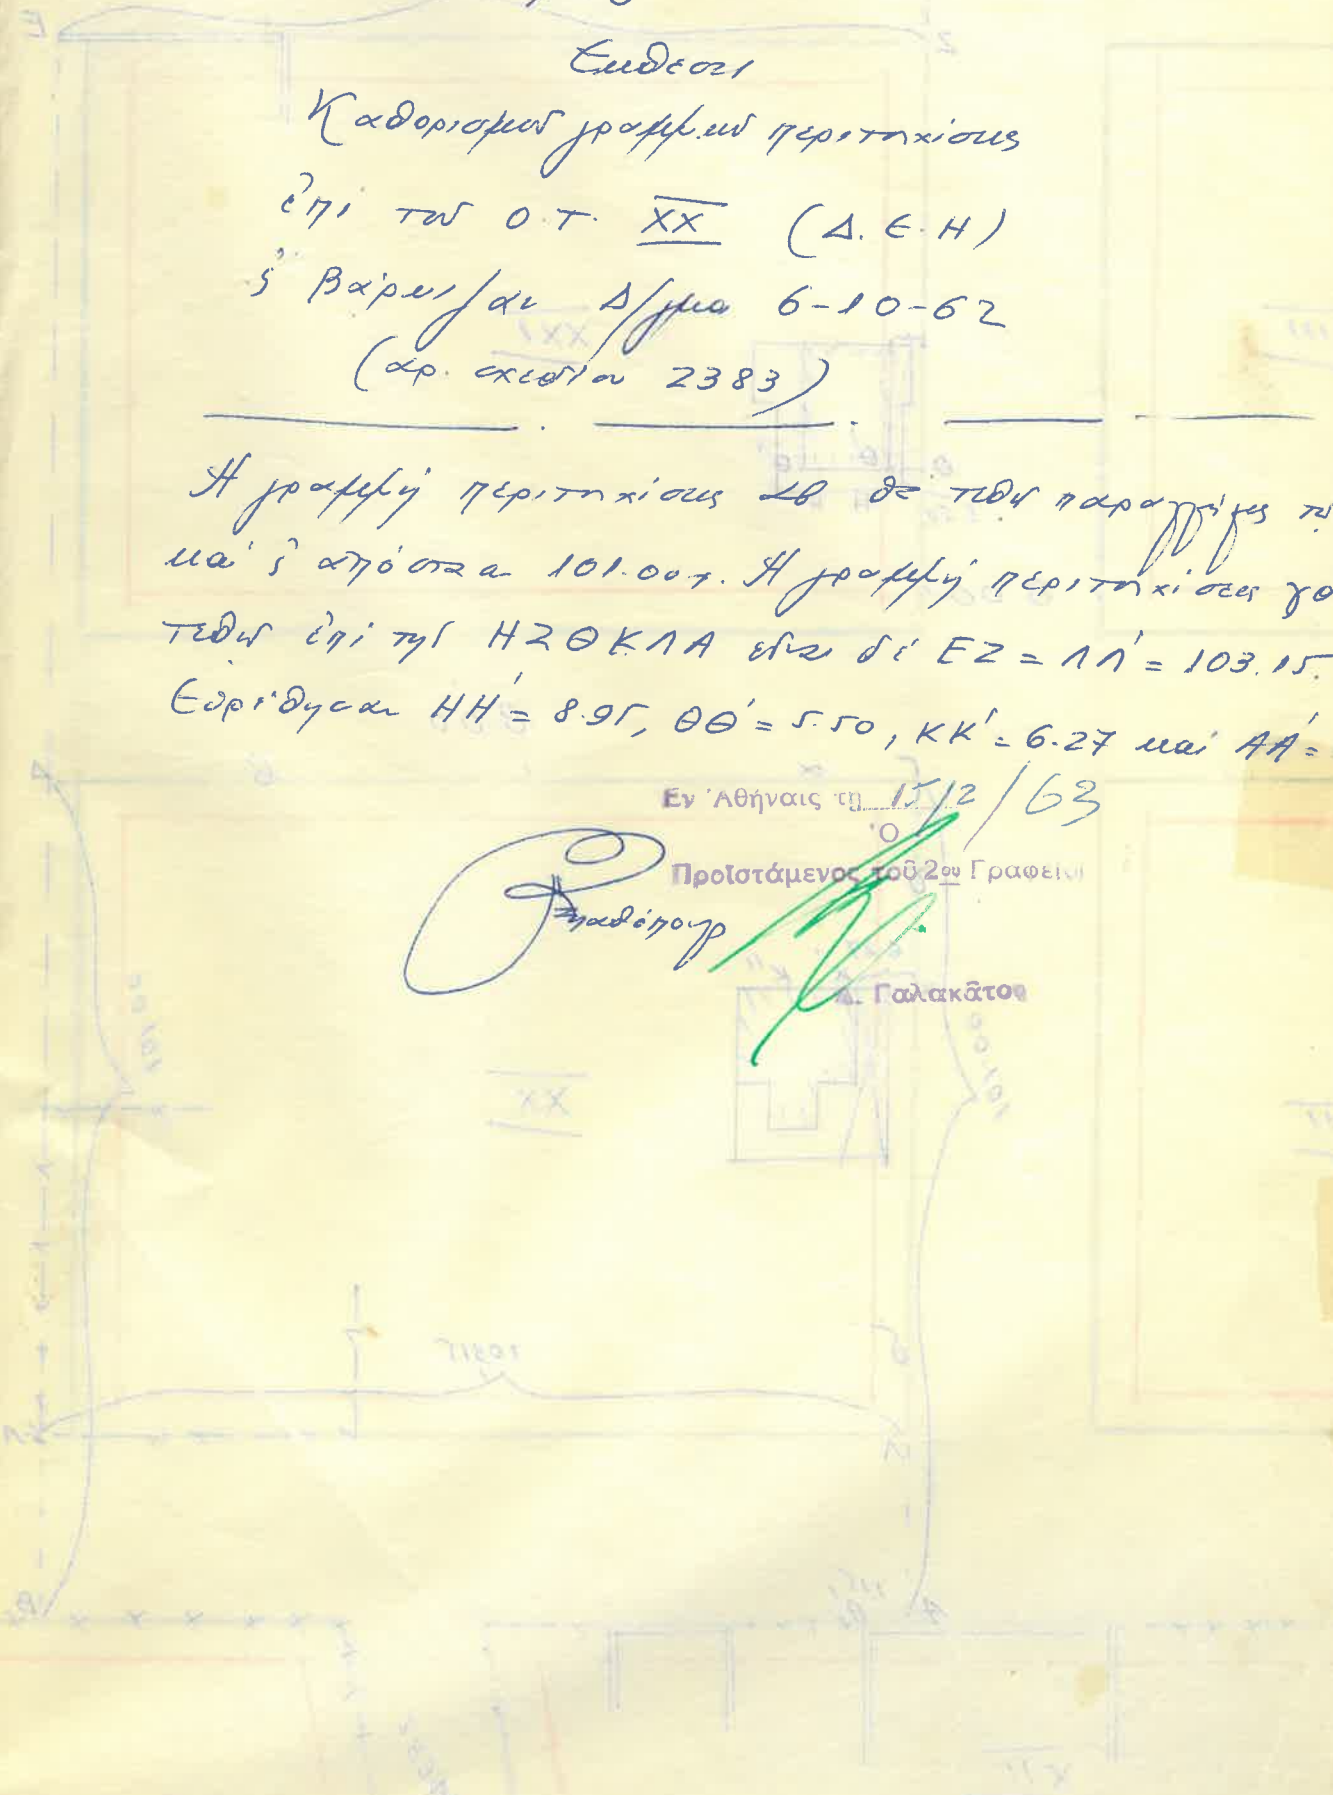 Έκθεσι
Καθορισμού γραμμών περιτοιχίσεως
ἐπί τοῦ Ο.Τ. XX (Δ.Ε.Η)
Βάρκιζαν Δ/γμα 6-10-62
(αρ. σχεδίου 2383)
Ἡ γραμμή περιτοιχίσεως αβ θα τεθῆ παραλλήλως
καί ἀπόστασιν 101.00 μ. Ἡ γραμμή περιτοιχίσεως γδ
τεθῆ ἐπί τῆς ΗΖΘΚΛΑ εἶναι δέ ΕΖ = ΛΛ' = 103.15.
Εὑρέθησαν ΗΗ' = 8.95, ΘΘ' = 5.50, ΚΚ' = 6.27 καί ΑΑ' =
Εν Ἀθήναις τη 15/2/63
Ὁ
Προϊστάμενος τοῦ 2ου Γραφείου
Δ. Γαλακᾶτος
XXI
101.00
101.00
XX
103.15